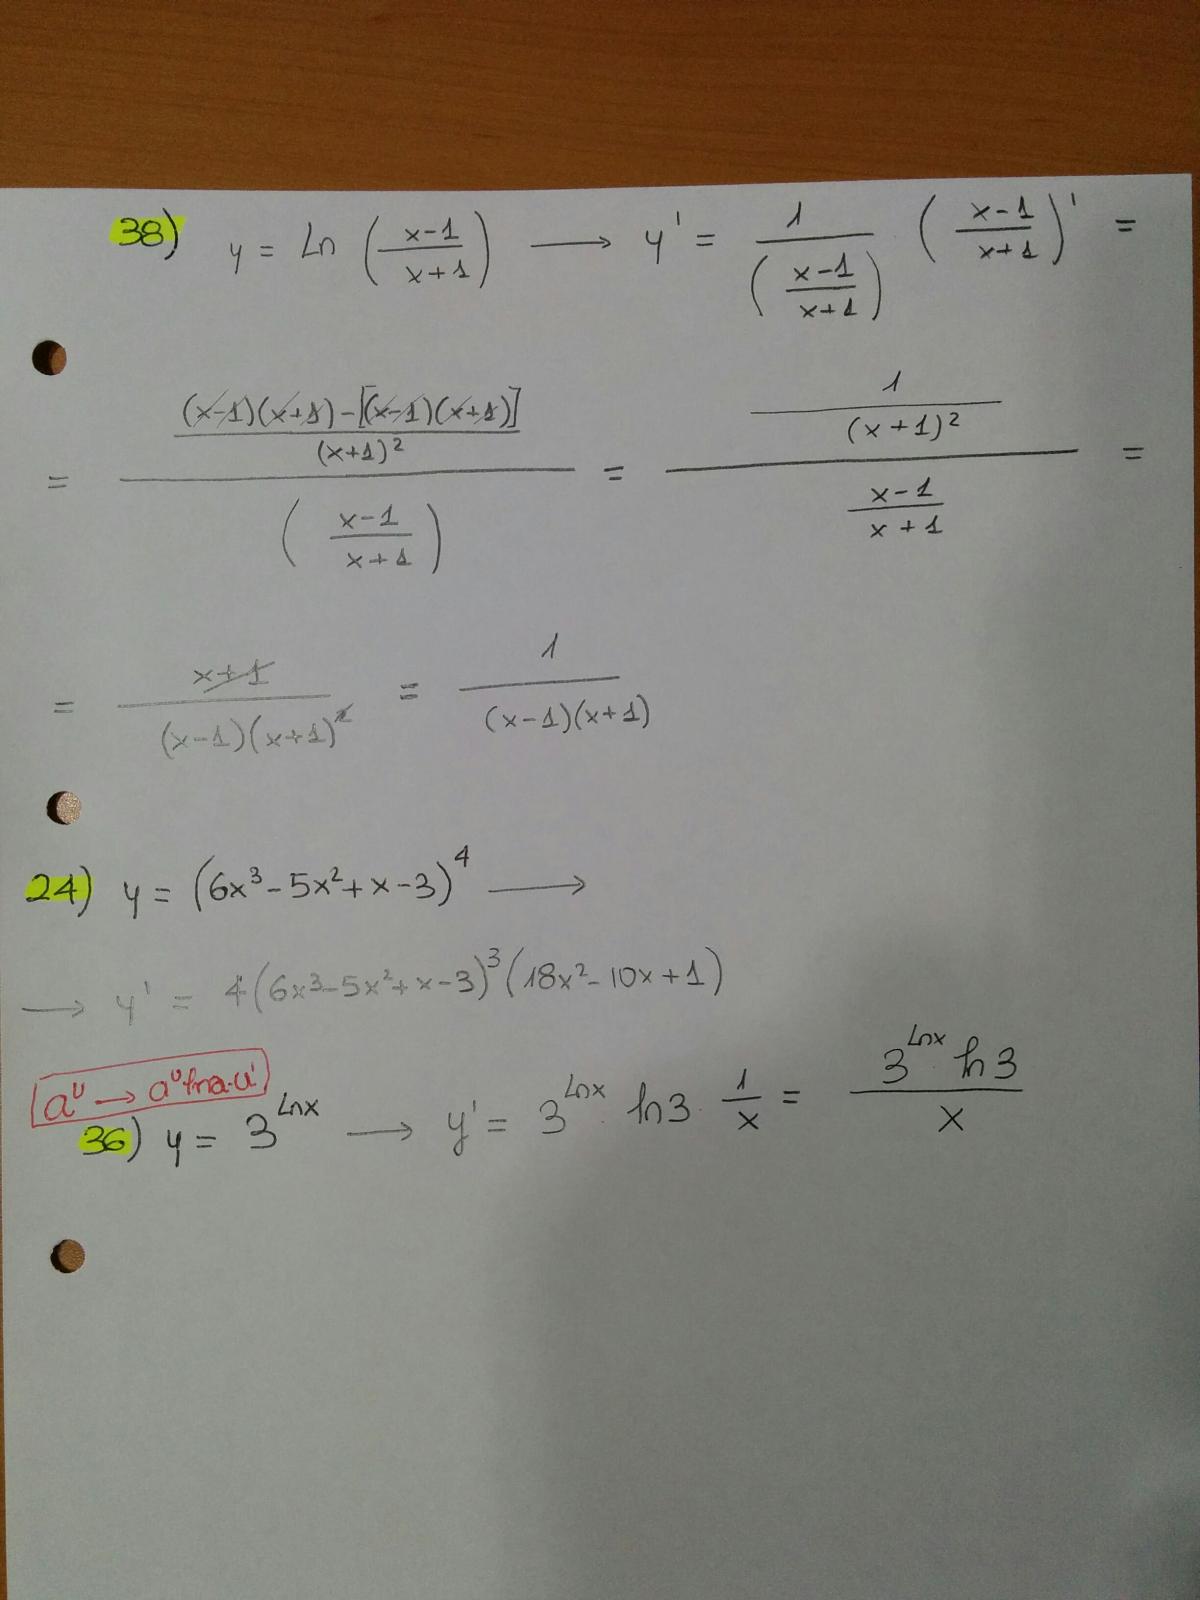 38) y = Ln ((x-1)/(x+1)) → y' = 1/((x-1)/(x+1)) · ((x-1)/(x+1))' =
= (((x-1)(x+1)-[(x-1)(x+1)])/(x+1)²)/((x-1)/(x+1)) = (1/(x+1)²)/((x-1)/(x+1)) =
= (x+1)/((x-1)(x+1)²) = 1/((x-1)(x+1))
24) y = (6x³-5x²+x-3)⁴ →
→ y' = 4(6x³-5x²+x-3)³(18x²-10x+1)
aᵘ → aᵘ lna·u'
36) y = 3^Lnx → y' = 3^Lnx · ln3 · 1/x = (3^Lnx · ln3)/x